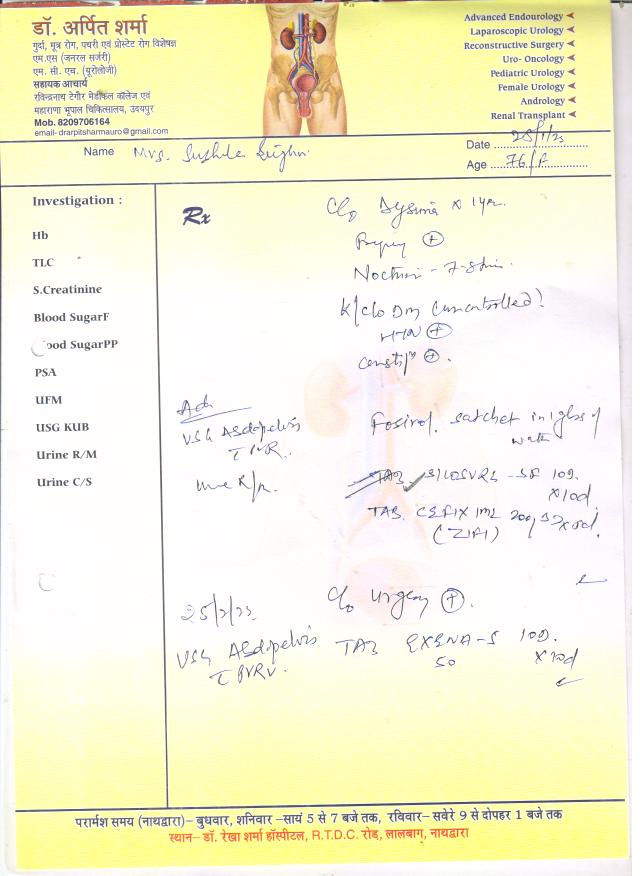 डॉ. अर्पित शर्मा
गुर्दा, मूत्र रोग, पथरी एवं प्रोस्टेट रोग विशेषज्ञ
एम.एस (जनरल सर्जरी)
एम. सी. एच. (यूरोलोजी)
सहायक आचार्य
रविन्द्रनाथ टेगौर मेडीकल कॉलेज एवं
महाराणा भूपाल चिकित्सालय, उदयपुर
Mob. 8209706164
email- drarpitsharmauro@gmail.com
Advanced Endourology
Laparoscopic Urology
Reconstructive Surgery
Uro- Oncology
Pediatric Urology
Female Urology
Andrology
Renal Transplant
Name Mrs. Sushila
Date
Age 76/F
Investigation :
Hb
TLC
S.Creatinine
Blood SugarF
ood SugarPP
PSA
UFM
USG KUB
Urine R/M
Urine C/S
Rx
C/o Dysuria x 1 yr.
+
- 7-8
K/C/o DM (uncontrolled)
HTN +
+
Adv
USG Abdopelvis
PVR.
Urine R/M.
satchet in 1 glass of
water
TAB SILOSURS - SF 10D.
x 10d
TAB. CEFIXIME 200
(ZIFI)
25/2/23
USG Abdopelvis
C/o urgency +.
TAB EXENA-S 10D.
50 x 10d
परामर्श समय (नाथद्वारा)– बुधवार, शनिवार –सायं 5 से 7 बजे तक, रविवार– सवेरे 9 से दोपहर 1 बजे तक
स्थान– डॉ. रेखा शर्मा हॉस्पीटल, R.T.D.C. रोड़, लालबाग, नाथद्वारा